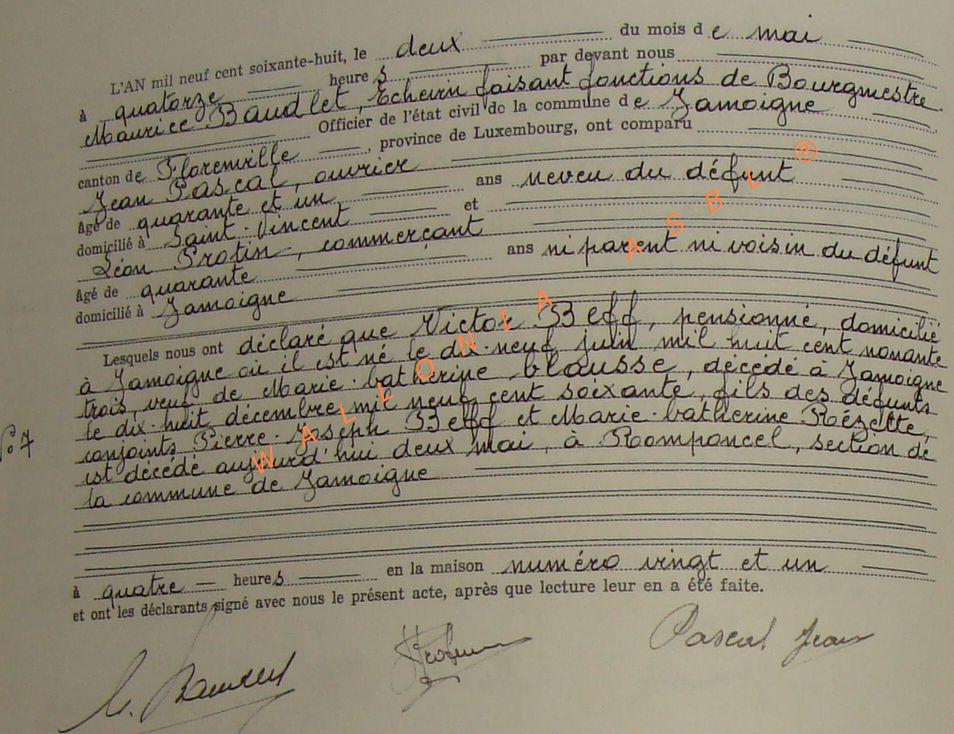 L'AN mil neuf cent soixante-huit, le deux du mois de mai
à quatorze heures par devant nous
Maurice Baudlet, Echevin faisant fonctions de Bourgmestre.
Officier de l'état civil de la commune de Jamoigne
canton de Florenville, province de Luxembourg, ont comparu
Jean Pascal, ouvrier
âgé de quarante et un ans neveu du défunt
domicilié à Saint-Vincent et
Léon Protin, commerçant
âgé de quarante ans ni parent ni voisin du défunt
domicilié à Jamoigne
Lesquels nous ont déclaré que Victor Beff, pensionné, domicilié
à Jamoigne où il est né le dix-neuf juin mil huit cent nonante
trois, veuf de Marie-Catherine Clausse, décédé à Jamoigne
le dix-huit décembre mil neuf cent soixante, fils des défunts
conjoints Pierre-Joseph Beff et Marie-Catherine Rézette,
est décédé aujourd'hui deux mai, à Romponcel, section de
la commune de Jamoigne
N° 7
à quatre heures en la maison numéro vingt et un
et ont les déclarants signé avec nous le présent acte, après que lecture leur en a été faite.
Pascal Jean
WALLONIA ASBL ®